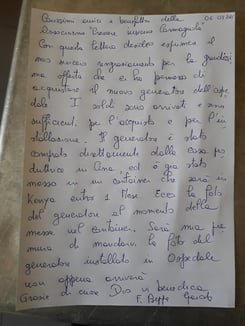 Carissimi amici e benefattori della
Associazione "Karibu
Con questa lettera desidero esprimere il
mio sincero ringraziamento per la grandissi
ma offerta che ci ha permesso di
acquistare il nuovo generatore dell'ospe
dale. I soldi sono arrivati e sono
sufficienti per l'acquisto e per l'in
stallazione. Il generatore è stato
comprato direttamente dalla casa pro
duttrice in Cina, ed è già stato
messo in un container che sarà in
Kenya entro 1 Mese. Ecco la foto
del generatore al momento della
messa nel container. Sarà mia pre
mura di mandarvi la foto del
generatore installato in Ospedale
non appena arriverà
Grazie di cuore Dio vi benedica
F. Beppe